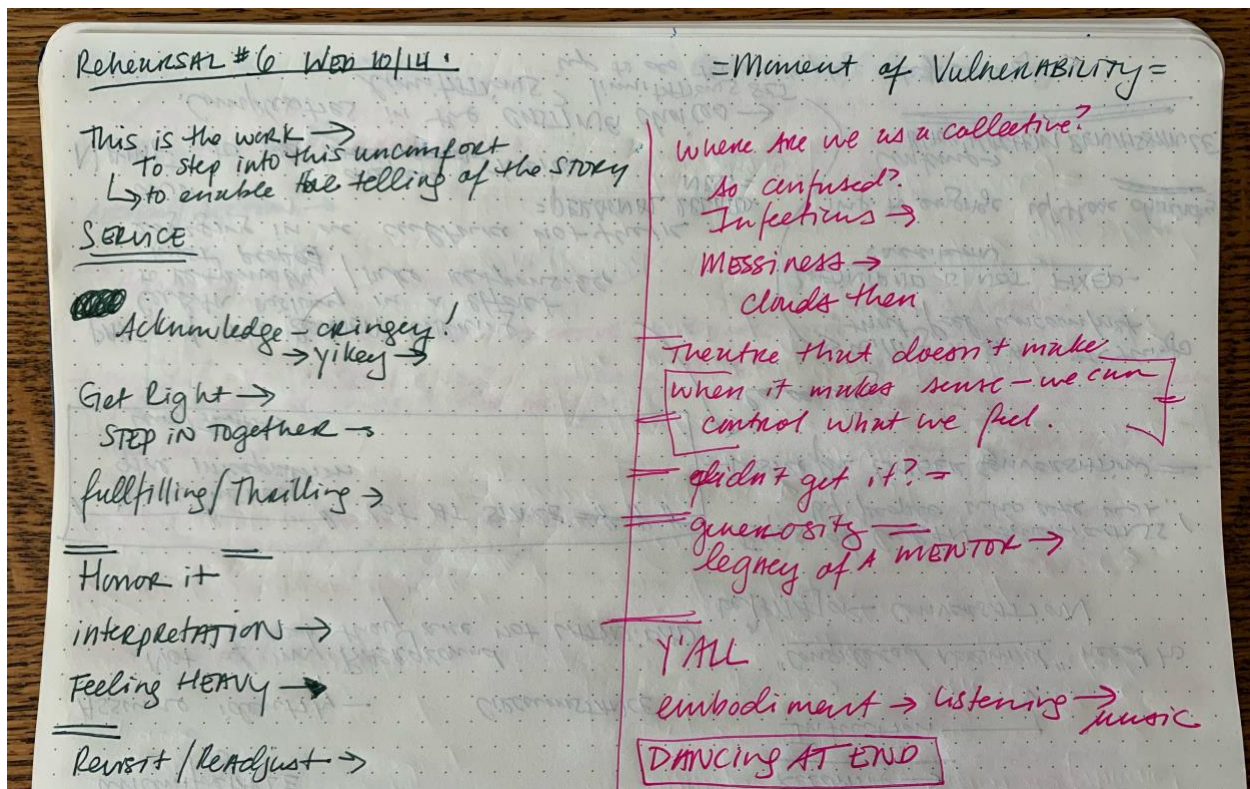 Rehearsal #6 Wed 10/14.
This is the work →
To step into this uncomfort
↳ to enable the telling of the STORY
SERVICE
Acknowledge - cringey!
→ yikey →
Get Right →
STEP IN Together →
fullfilling / Thrilling →
Honor it
interpretation →
Feeling HEAVY →
Revisit / Readjust →
= Moment of Vulnerability =
Where are we as a collective?
So confused?
Infectious →
Messiness →
clouds then
Theatre that doesn't make
when it makes sense - we can
control what we feel.
didn't get it? =
generosity =
legacy of A MENTOR →
Y'ALL
embodiment → listening →
music
DANCING AT END